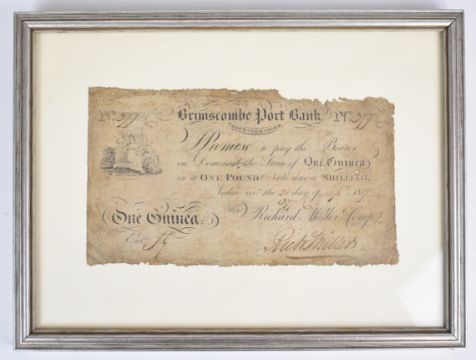 No. 977 Brimscombe Port Bank No. 977
GLOUCESTERSHIRE
I Promise to pay the Bearer
on Demand the Sum of One Guinea
in a ONE POUND Note and a SHILLING
Value rec.d the day of 181
For Richard Miller & Comp.y
One Guinea
Ent.d
Rich.d Miller